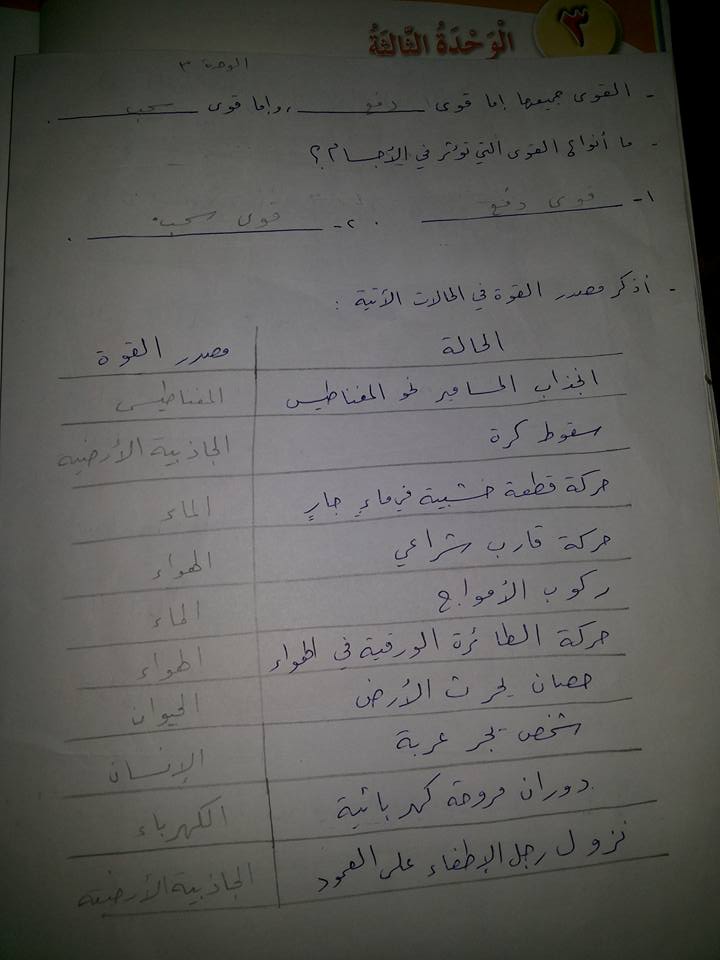 ٣
الْوَحْدَةُ الثَّالِثَةُ
الوحدة ٣
- القوى جميعها إما قوى دفع ، وإما قوى سحب .
- ما أنواع القوى التي تؤثر في الأجسام ؟
١- قوى دفع . ٢- قوى سحب .
- أذكر مصدر القوة في الحالات الآتية :
الحالة مصدر القوة
انجذاب المسامير نحو المغناطيس المغناطيس
سقوط كرة الجاذبية الأرضية
حركة قطعة خشبية في ماءٍ جارٍ الماء
حركة قارب شراعي الهواء
ركوب الأمواج الماء
حركة الطائرة الورقية في الهواء الهواء
حصان يحرث الأرض الحيوان
شخص يجر عربة الإنسان
دوران مروحة كهربائية الكهرباء
نزول رجل الإطفاء على العمود الجاذبية الأرضية